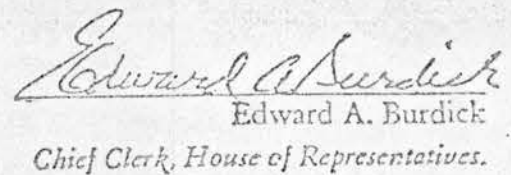 Edward A Burdick
Edward A. Burdick
Chief Clerk, House of Representatives.